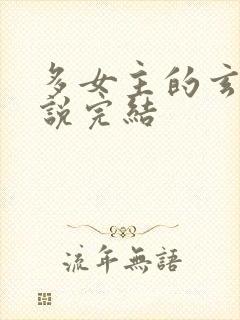 多女主的玄
說完結
流年無語